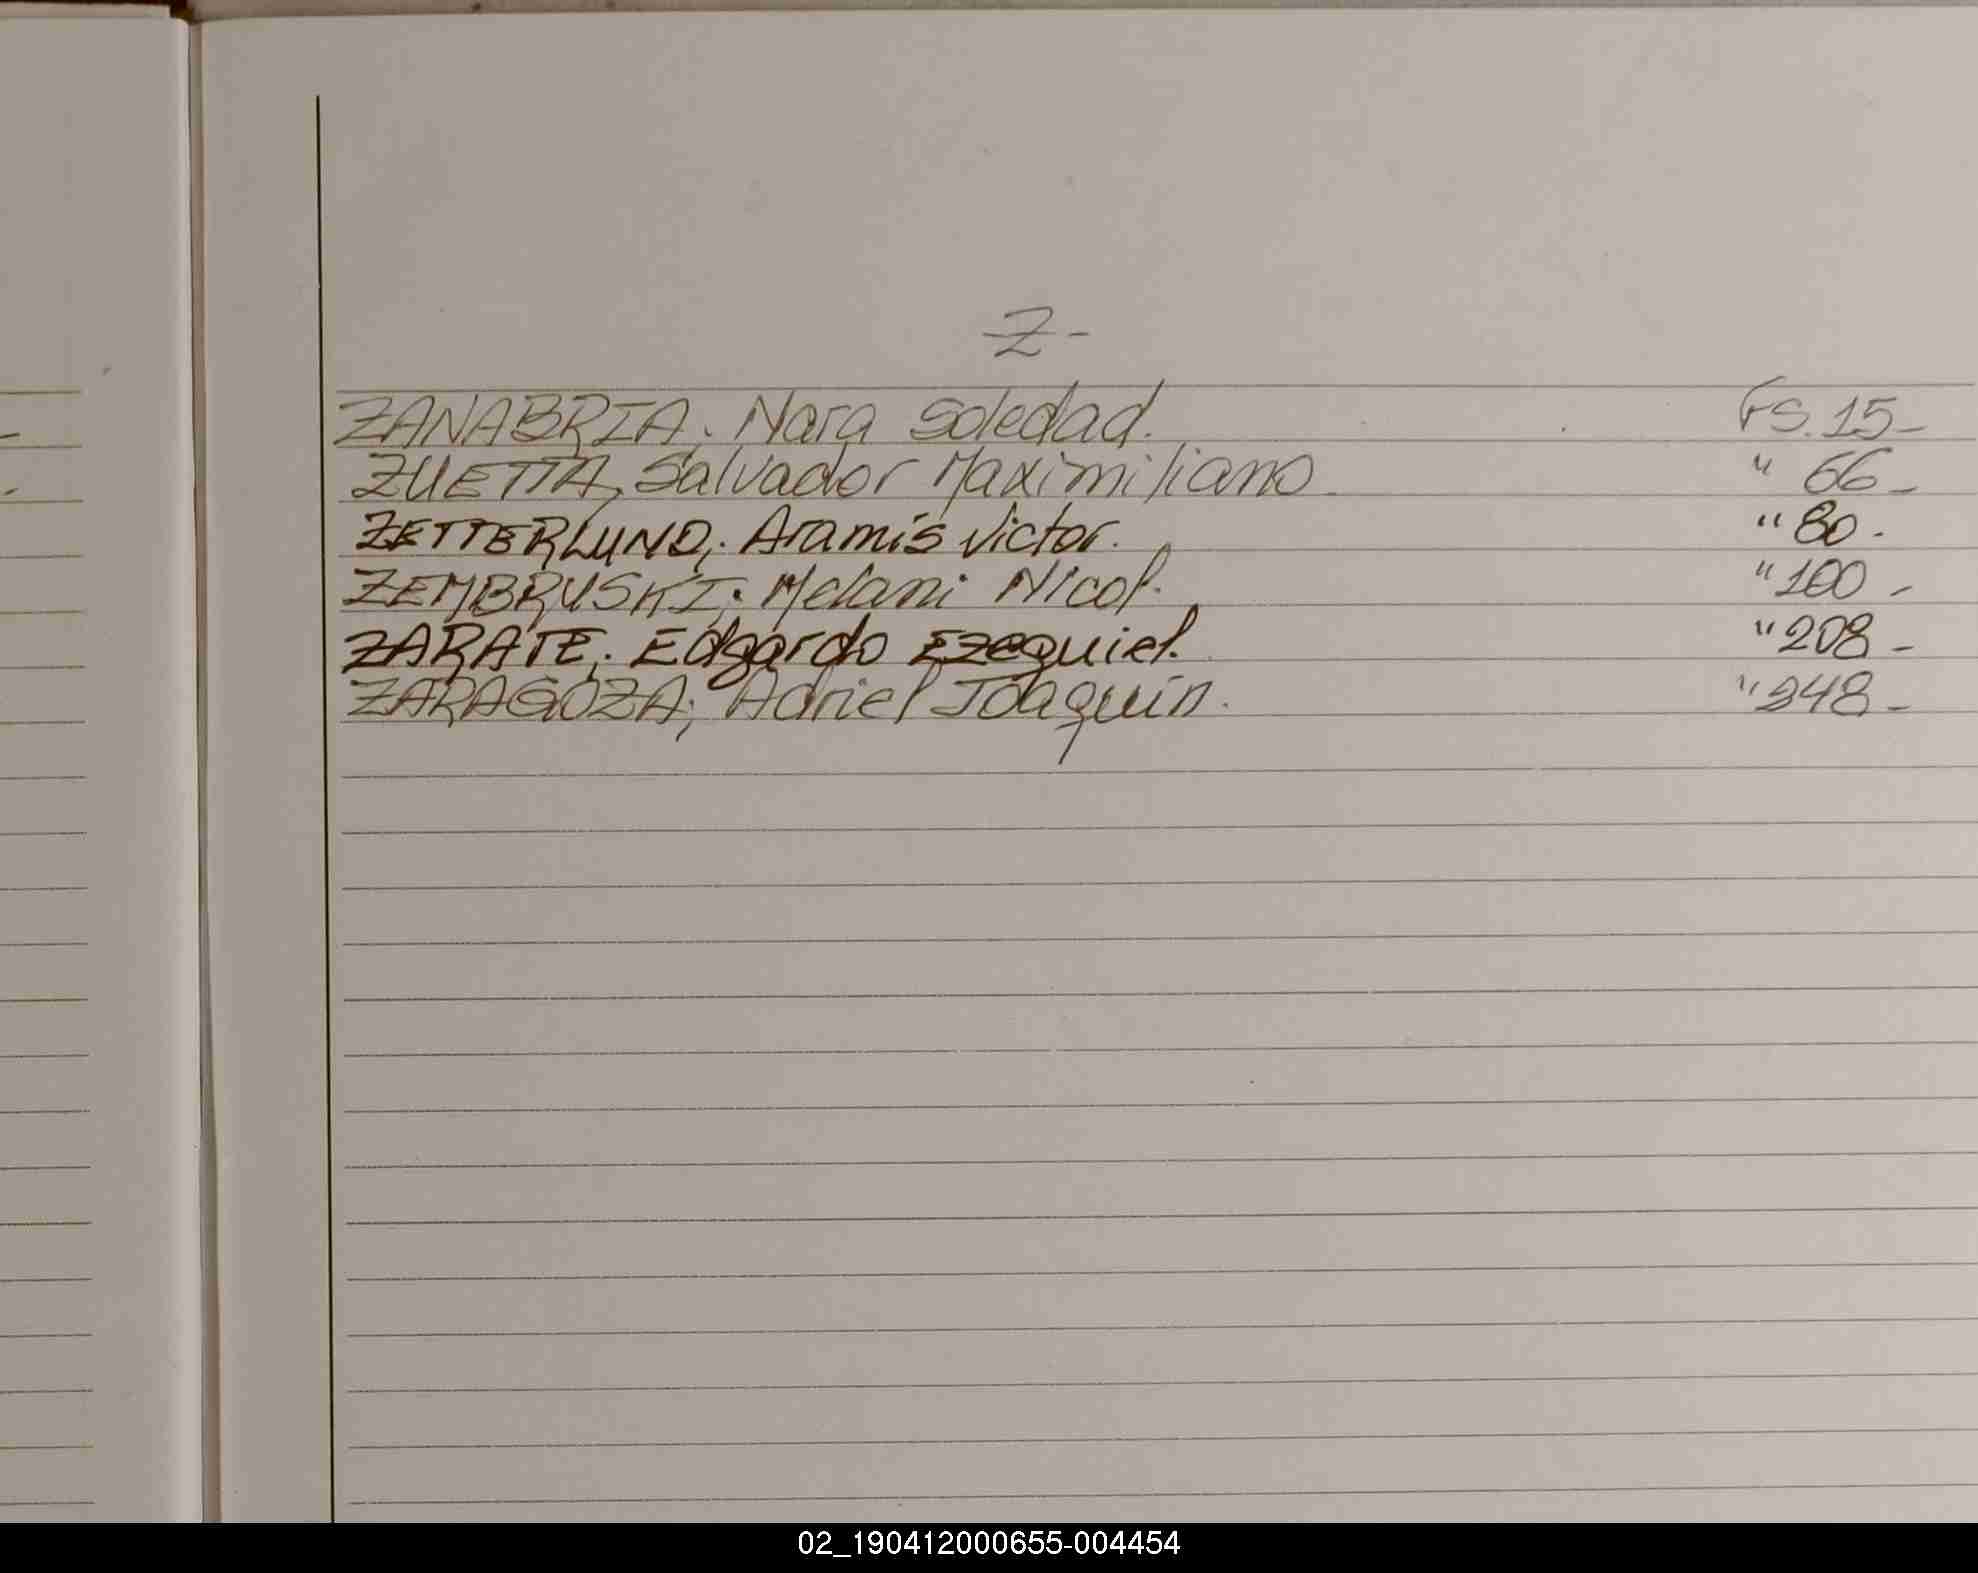 -Z-
ZANABRIA. Nara Soledad. Fs. 15-
ZUETTA, Salvador Maximiliano. " 66-
ZETTERLUND, Aramis Victor. " 80.
ZEMBRUSKI. Melani Nicol. " 100-
ZARATE. Edgardo Ezequiel. " 208-
ZARAGOZA; Adriel Joaquin. " 248-
02_190412000655-004454